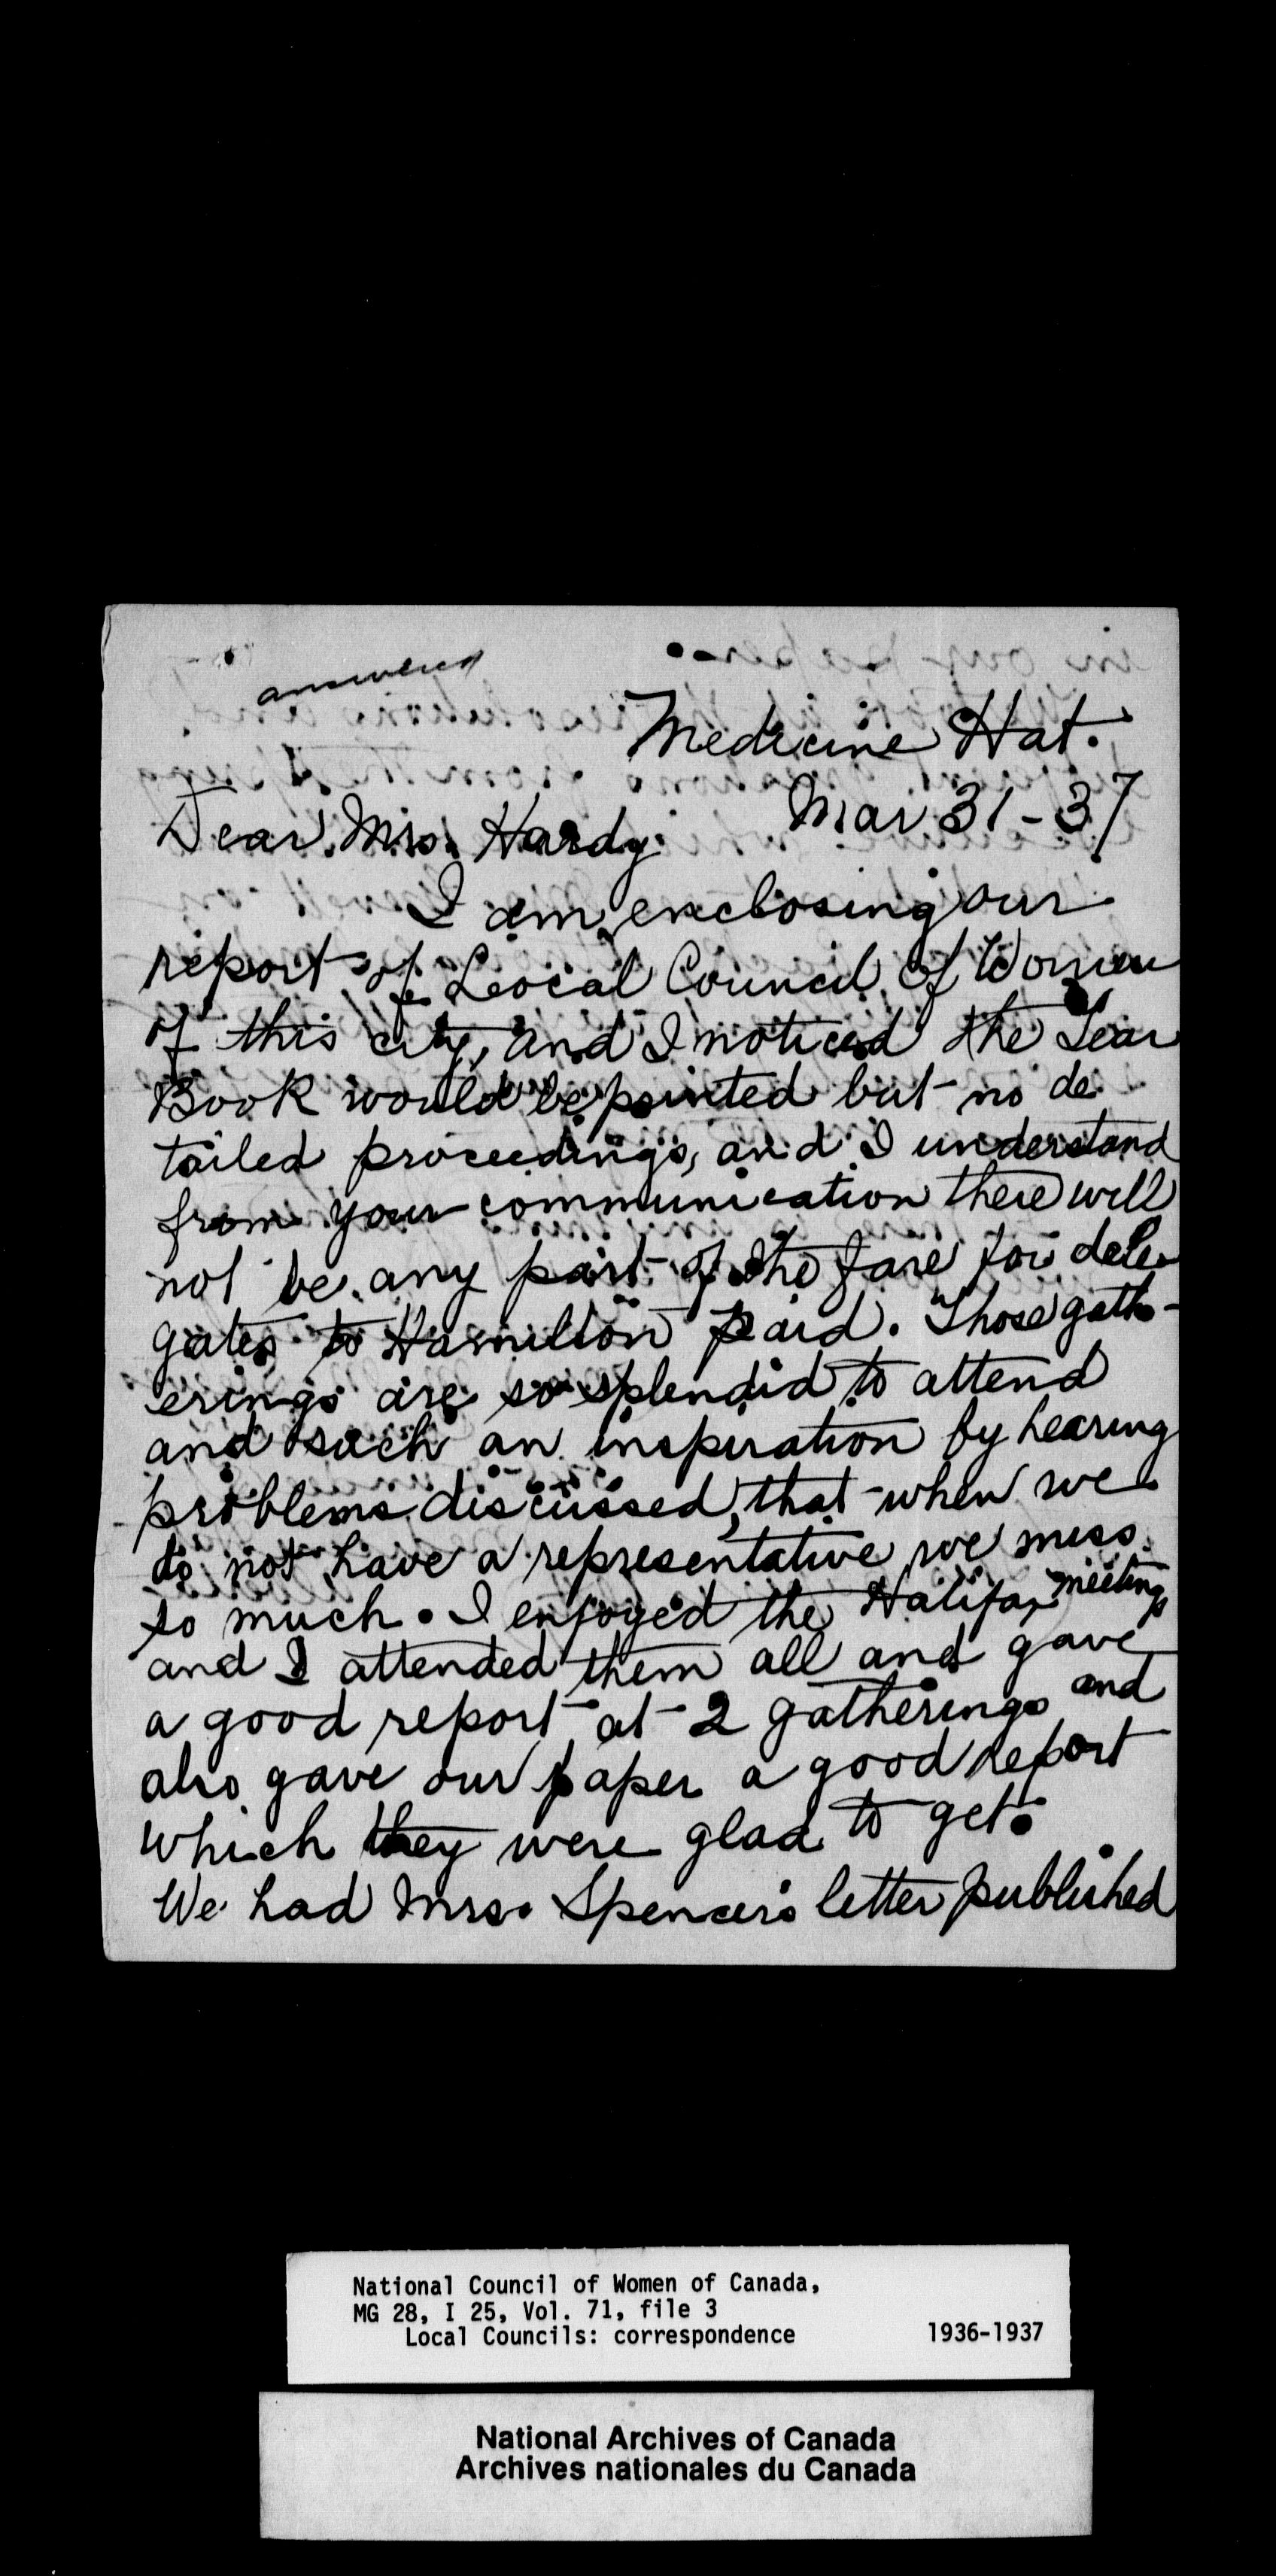 answered
Medicine Hat.
Mar 31-37
Dear Mrs. Hardy
I am enclosing our
report of Local Council of Women
of this city, and I noticed the Year
Book would be printed but no de
tailed proceedings, and I understand
from your communication there will
not be any part of the fare for dele
gates to Hamilton paid. Those gath-
erings are so splendid to attend
and such an inspiration by hearing
problems discussed, that when we
do not have a representative we miss
so much. I enjoyed the Halifax meetings
and I attended them all and gave
a good report at 2 gatherings and
also gave our paper a good report
which they were glad to get.
We had Mrs. Spencer's letter published
National Council of Women of Canada,
MG 28, I 25, Vol. 71, file 3
Local Councils: correspondence 1936-1937
National Archives of Canada
Archives nationales du Canada